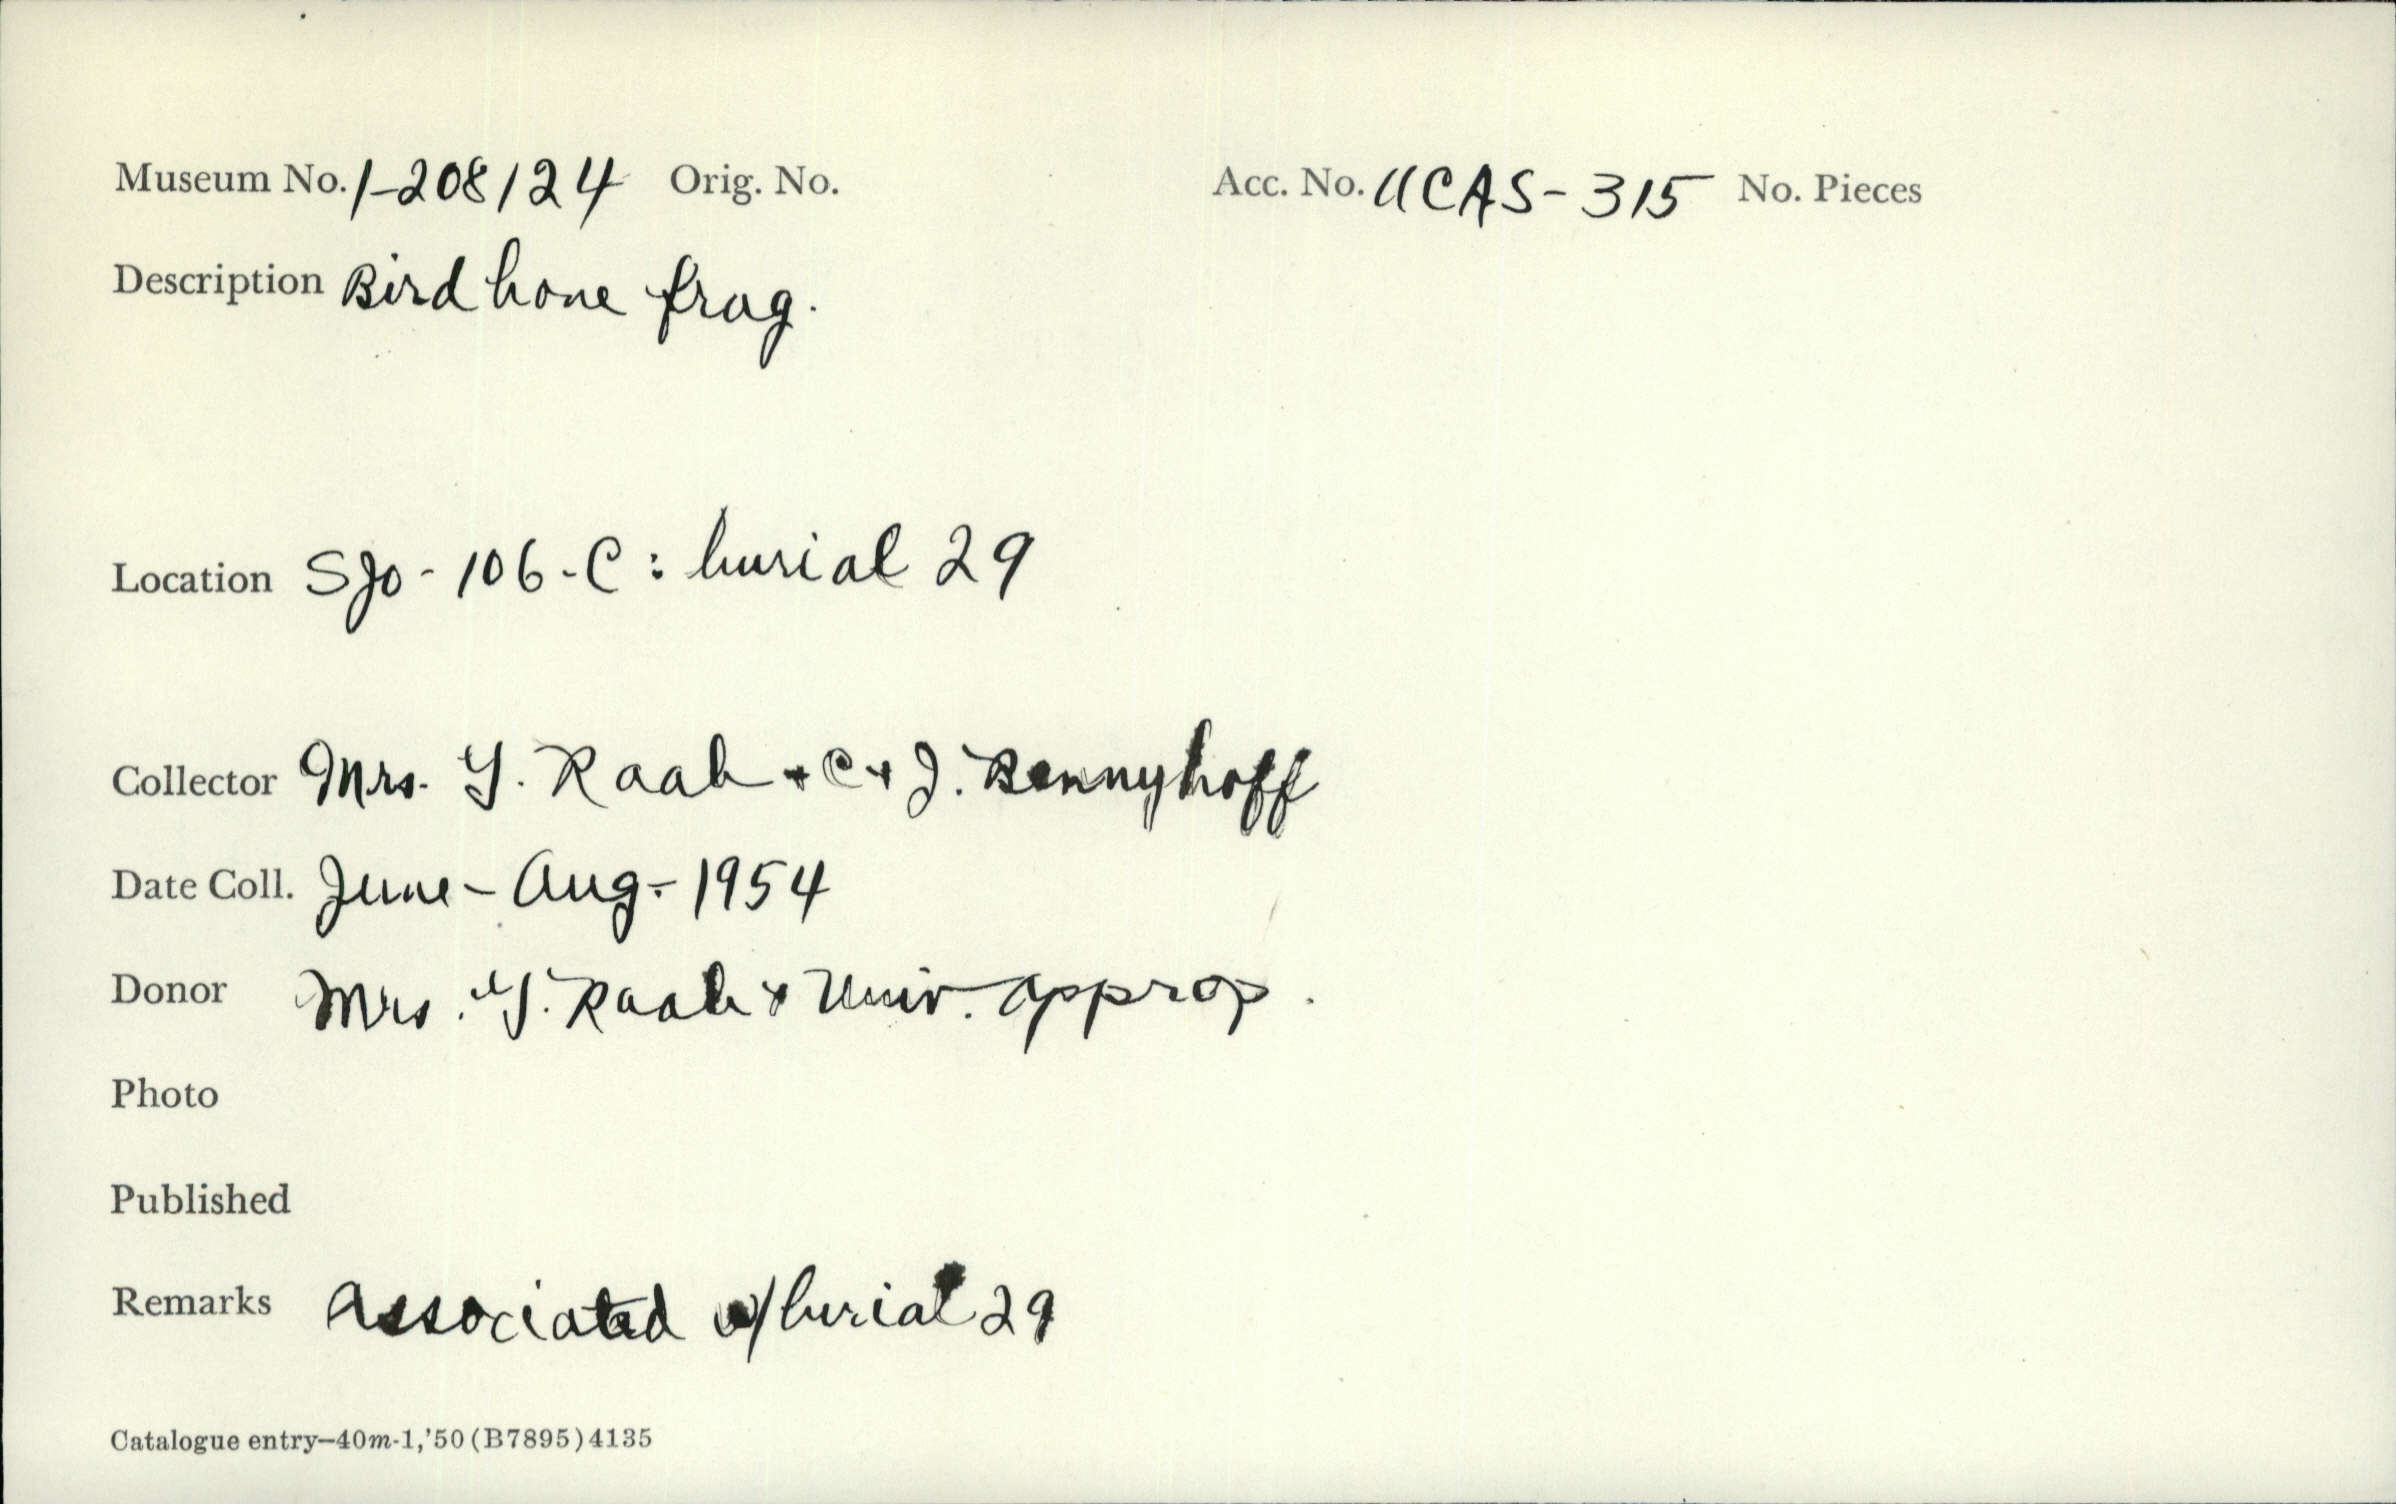 Museum No. 1-208124 Orig. No. Acc. No. UCAS-315 No. Pieces
Description Bird bone frag.
Location SJo-106-C: burial 29
Collector Mrs. Y. Raab + C + J. Bennyhoff
Date Coll. June - Aug. - 1954
Donor Mrs. Y. Raab + Univ. approp.
Photo
Published
Remarks Associated w/ burial 29
Catalogue entry—40m-1,'50 (B7895) 4135